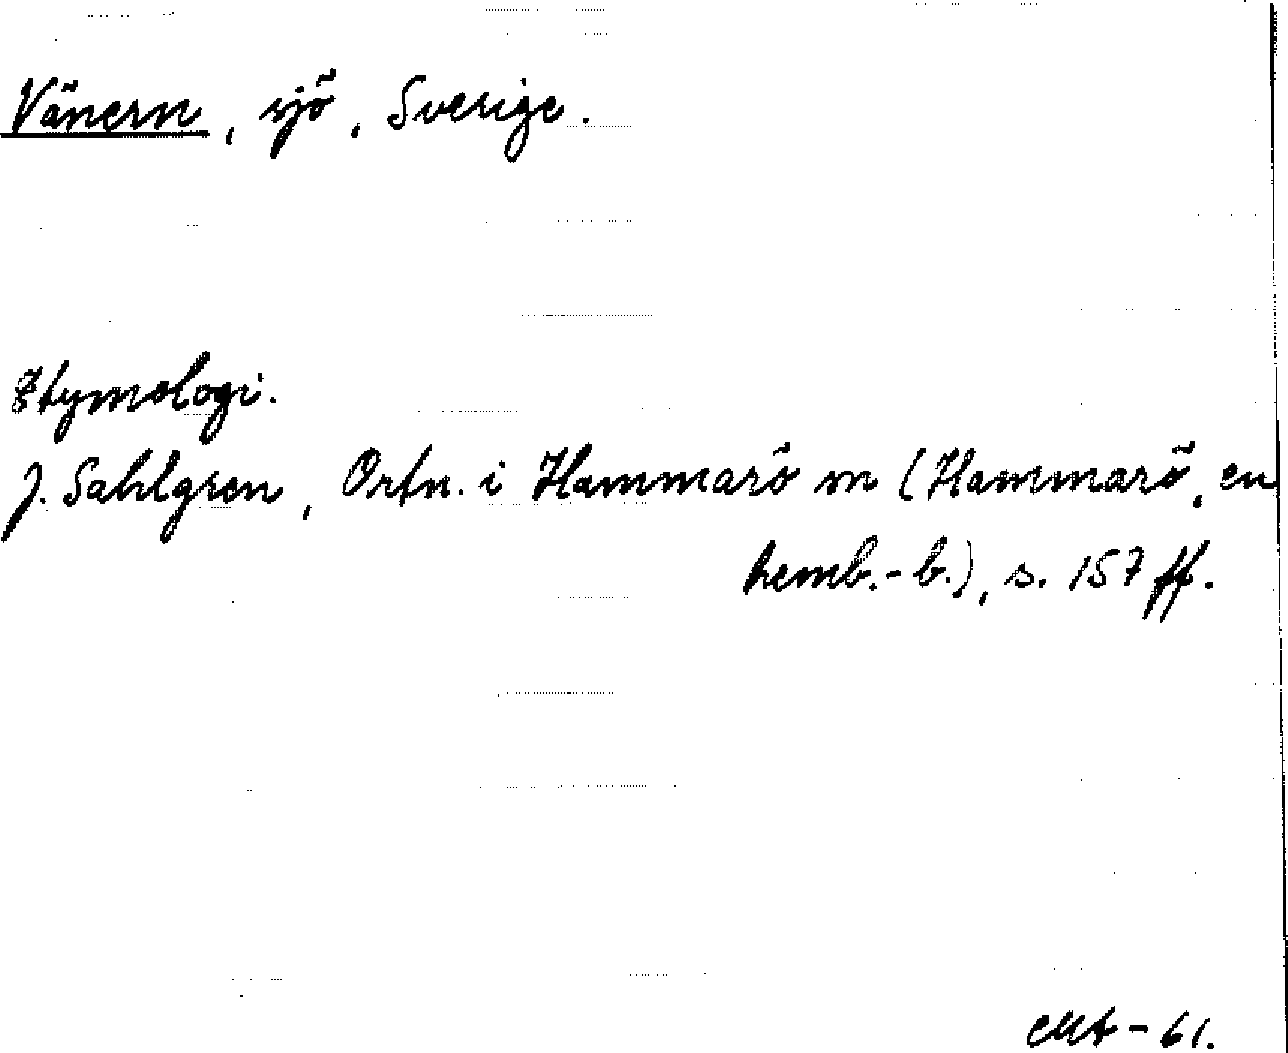 Vänern, sjö, Sverige.
Etymologi.
J. Sahlgren, Ortn. i Hammarö sn (Hammarö, en
hemb.-b.), s. 157 ff.
-61.